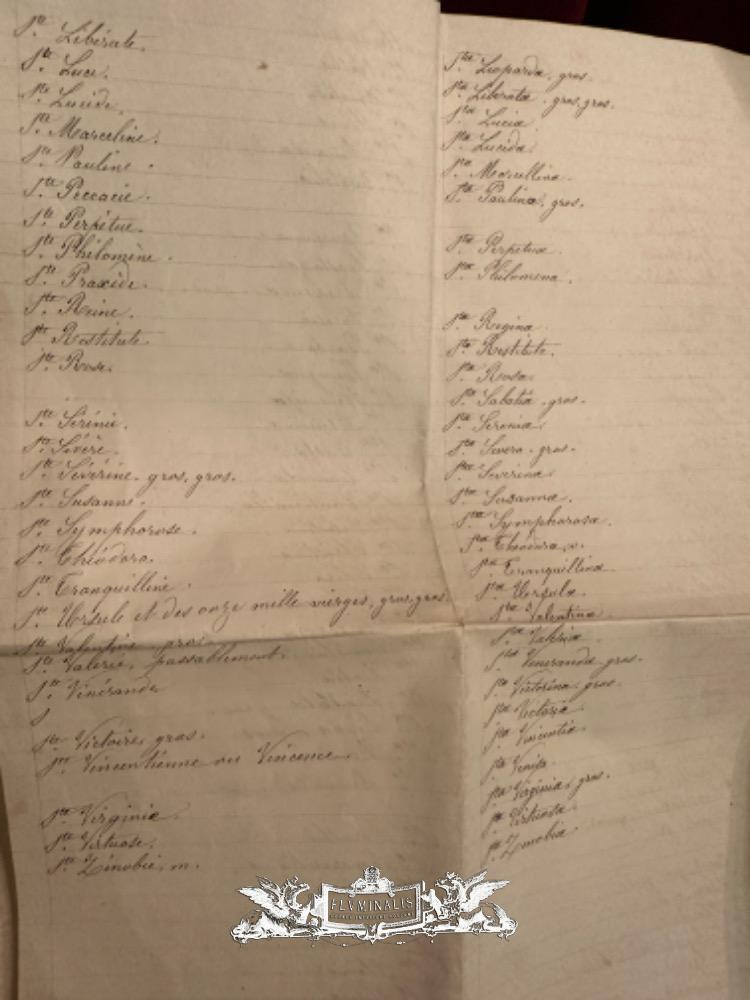 Ste. Libérate.
Ste. Luce.
Ste. Lucide.
Ste. Marceline.
Ste. Pauline.
Ste. Peccacie.
Ste. Perpétue.
Ste. Philomène.
Ste. Praxède.
Ste. Reine.
Ste. Restitute.
Ste. Rose.
Ste. Sérénie.
Ste. Sévère.
Ste. Séverine. gros, gros.
Ste. Susanne.
Ste. Symphorose.
Ste. Théodora.
Ste. Tranquilline.
Ste. Ursule et des onze mille vierges, gros, gros.
Ste. Valentine
Ste. Valérie, passablement.
Ste. Vénérande
S
Ste. Victoire, gros.
Ste. Vincentienne ou Vincence.
Ste. Virginie.
Ste. Virtuose.
Ste. Zénobie, m.
Stæ. Leopardæ, gros.
Stæ. Liberatæ. gros, gros.
Stæ. Luciæ
Stæ. Lucidæ
Stæ. Marcellinæ.
Stæ. Paulinæ, gros.
Stæ. Perpetuæ.
Stæ. Philomena.
Stæ. Regina
Stæ. Restitute.
Stæ. Rosæ.
Stæ. Sabatiæ. gros.
Stæ. Sereniæ.
Stæ. Severa. gros.
Stæ. Severinæ.
Stæ. Susannæ.
Stæ. Symphorosæ.
Stæ. Théodoræ
Stæ. Tranquillinæ
Stæ. Ursulæ.
Stæ. Valentinæ
Stæ. Valeriæ
Stæ. Venerandæ gros.
Stæ. Victorina. gros.
Stæ. Victoriæ.
Stæ. Vincentiæ.
Stæ.
Stæ. Virginiæ, gros.
Stæ. Virtuosæ.
Stæ. Zenobiæ.
FLVMINALIS